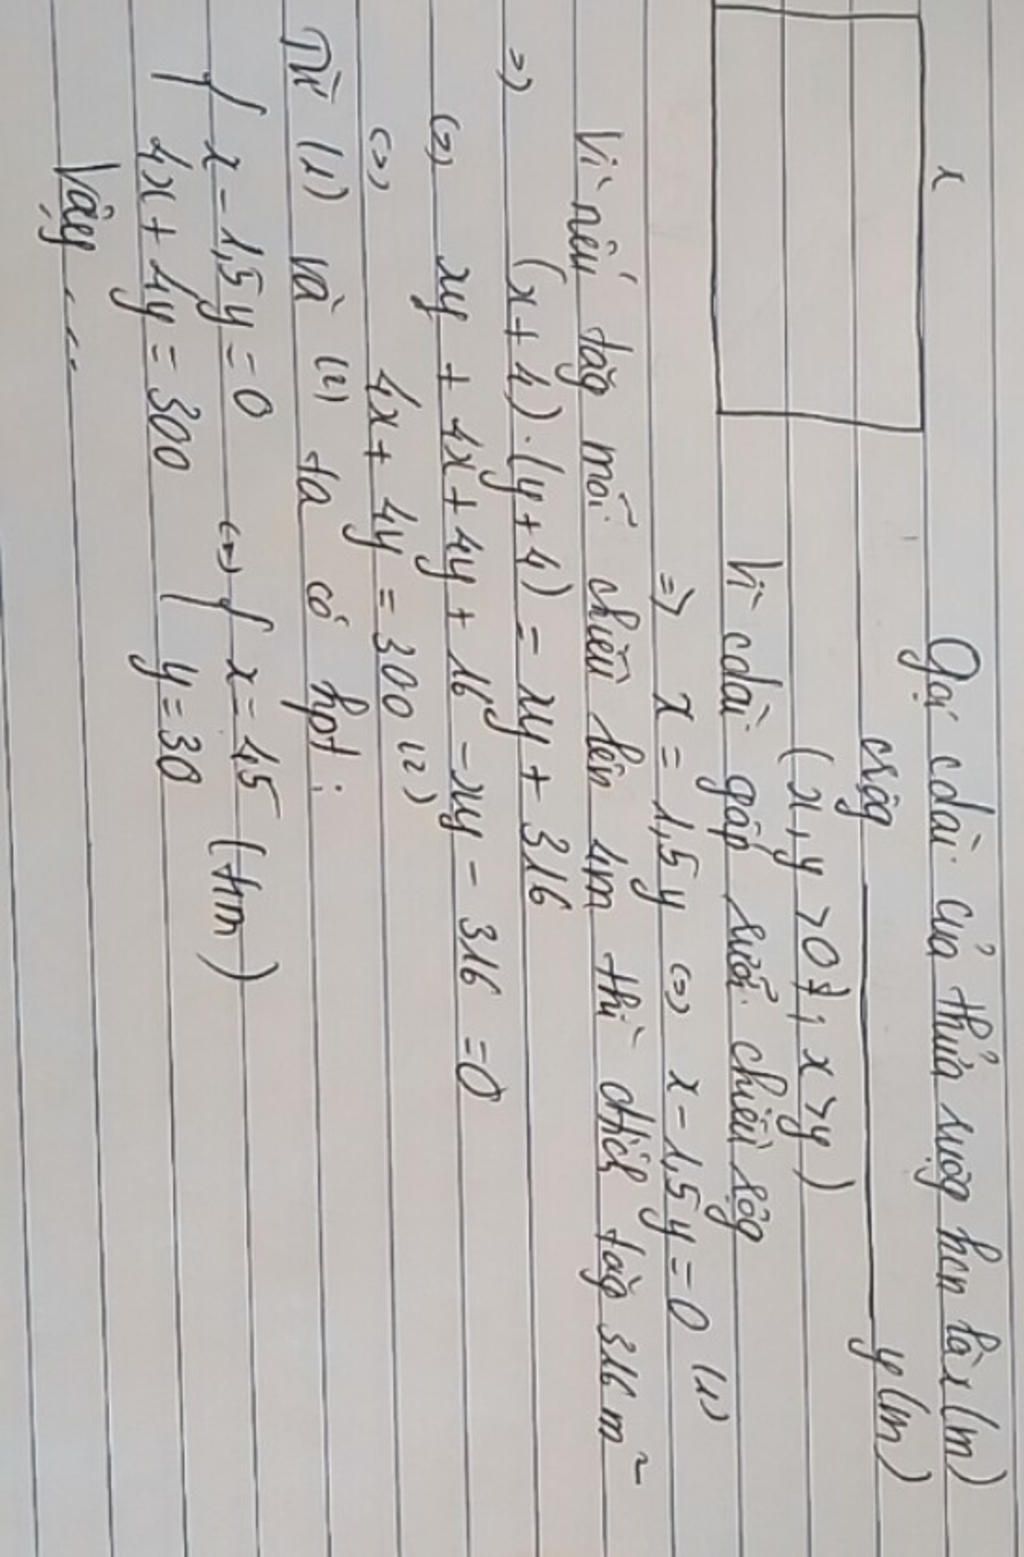 x
Gọi cdài của thửa ruộg hcn là x (m)
crộg y (m)
(x, y > 0; x > y)
Vì cdài gấp rưỡi chiều rộg
=> x = 1,5y <=> x - 1,5y = 0 (1)
Vì nếu tăg mỗi chiều lên 4m thì dtích tăg 316 m²
=> (x + 4).(y + 4) = xy + 316
<=> xy + 4x + 4y + 16 - xy - 316 = 0
<=> 4x + 4y = 300 (2)
Từ (1) và (2) ta có hpt:
{ x - 1,5y = 0 <=> { x = 45 (tm)
4x + 4y = 300 y = 30
Vậy ...